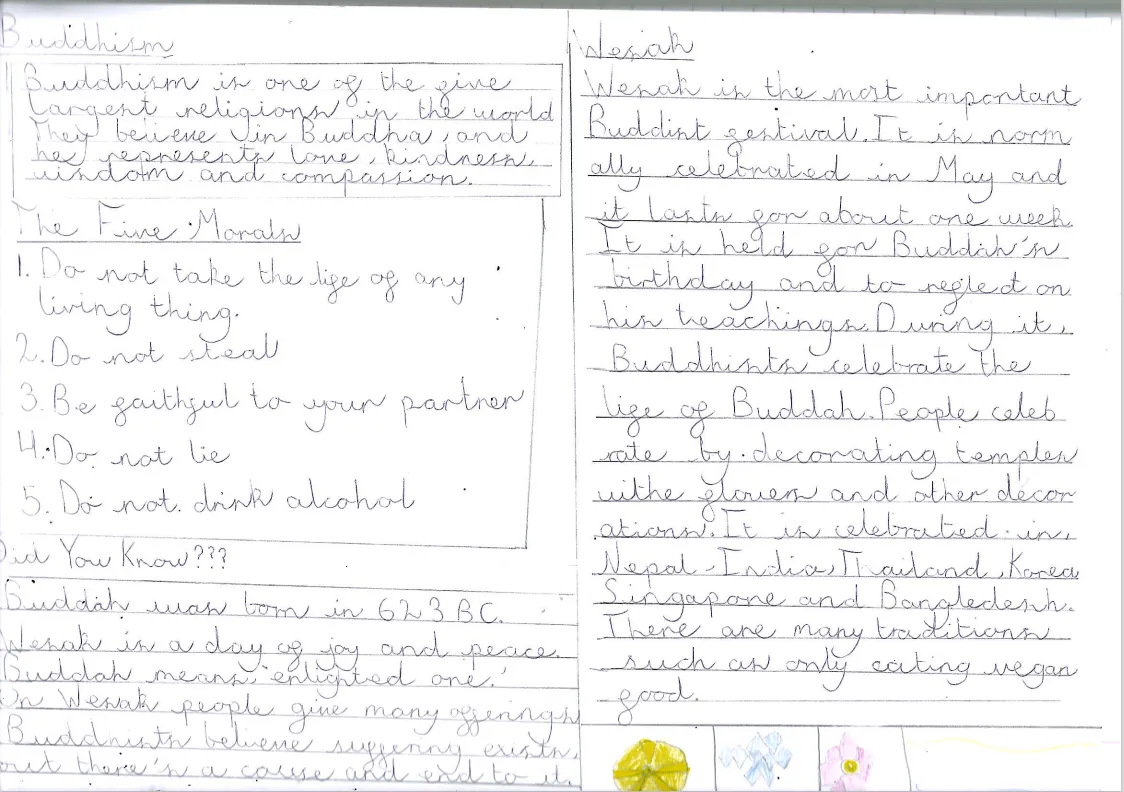 Buddhism
Buddhism is one of the five
largest religions in the world
They believe in Buddha, and
he represents love, kindness,
wisdom and compassion.
The Five Morals
1. Do not take the life of any
living thing.
2. Do not steal
3. Be faithful to your partner
4. Do not lie
5. Do not drink alcohol
Did You Know???
Buddah was born in 623 BC.
Wesak is a day of joy and peace.
Buddah means, 'enlighted one.'
On Wesak people give many offerings
Buddhists believe suffering exists,
but there's a cause and end to it.
Wesak
Wesak is the most important
Buddist festival. It is norm
ally celebrated in May and
it lasts for about one week
It is held for Buddah's
birthday and to reflect on
his teachings. During it,
Buddhists celebrate the
life of Buddah. People celeb
rate by decorating temples
withe flowers and other decor
ations. It is celebrated in,
Nepal, India, Thailand, Korea
Singapore and Bangledesh.
There are many traditions
such as only eating vegan
food.